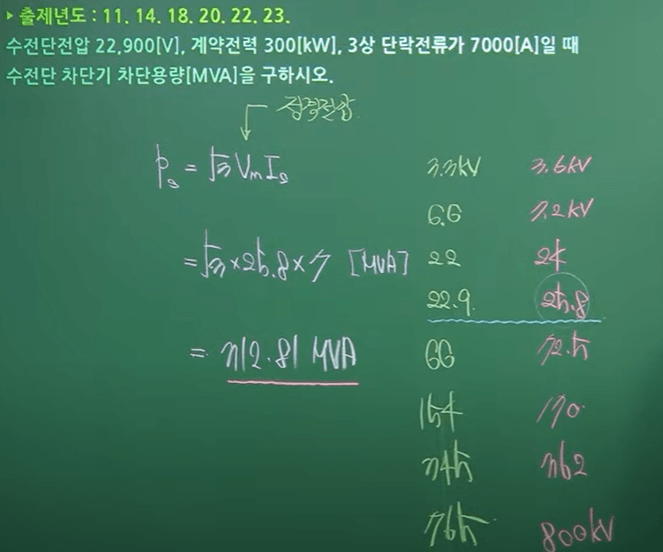 ▶ 출제년도 : 11. 14. 18. 20. 22. 23.
수전단전압 22,900[V], 계약전력 300[kW], 3상 단락전류가 7000[A]일 때
수전단 차단기 차단용량[MVA]을 구하시오.
정격전압
Ps = √3 Vm Is
= √3 × 25.8 × 7 [MVA]
= 312.81 MVA
3.3kV 3.6kV
6.6 7.2kV
22 24
22.9. 25.8
66 72.5
154 170
345 362
765 800kV